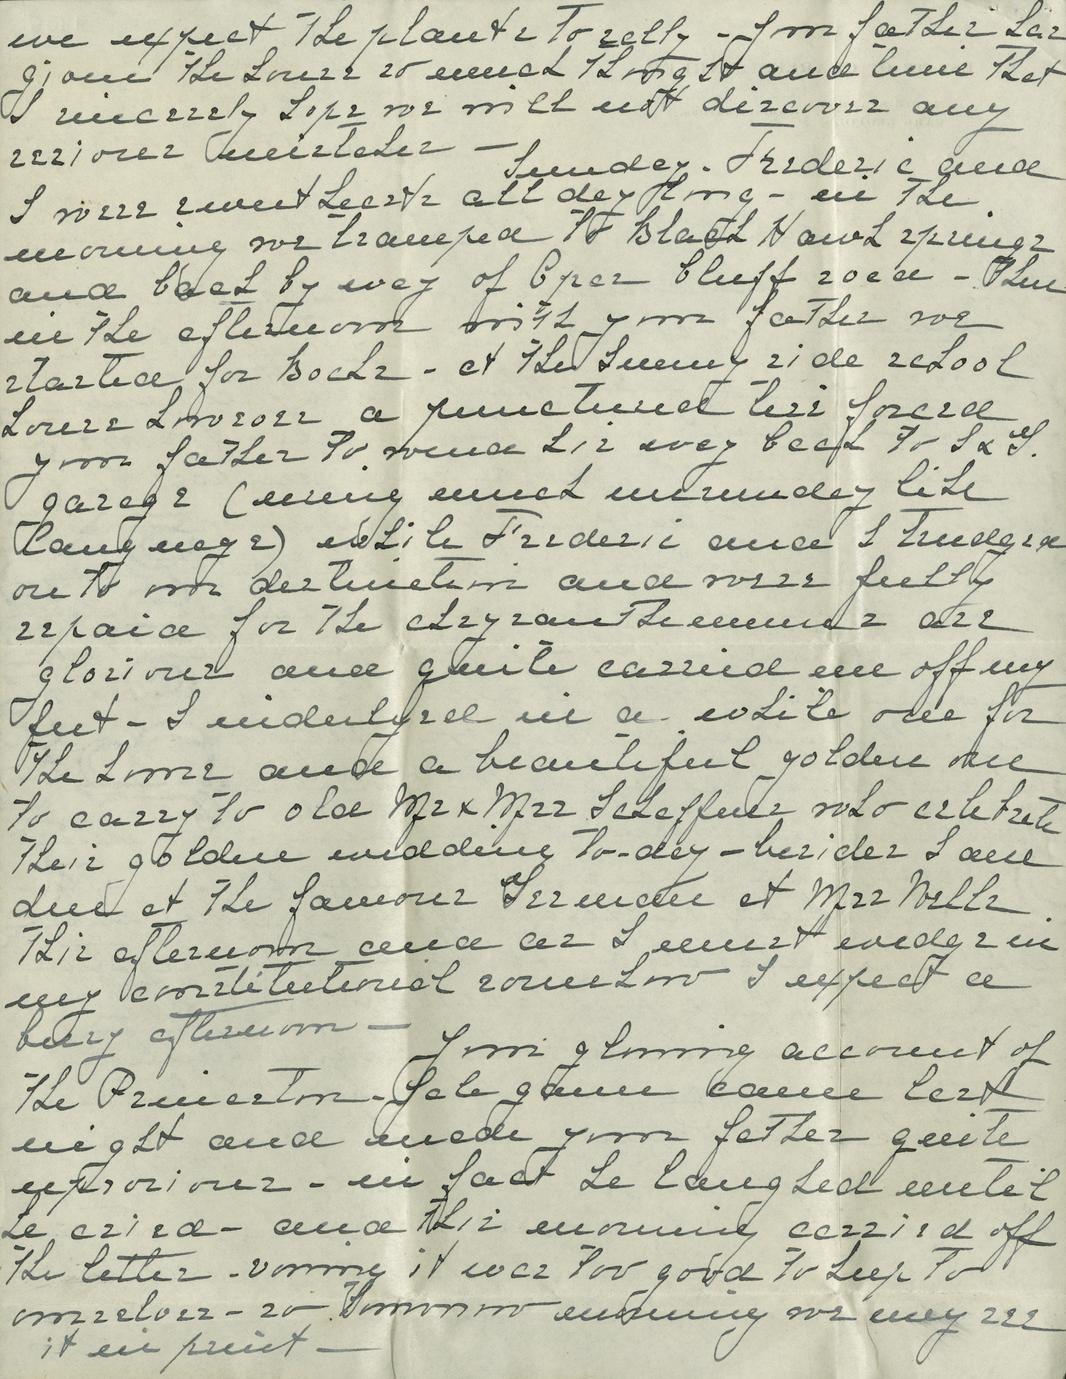 we expect the plants to rally - Your father has
given the house so much thought and time that
I sincerely hope we will not discover any
serious mistakes -
Sunday. Frederic and
I were sweethearts all day long - in the
morning we tramped to Black Hawk springs
and back by way of Cper bluff road - Then
in the afternoon with your father we
started for Bochs - at the Sunny side school
house however a punctured tire forced
your father to wend his way back to S & G.
garage (using much unsunday like
language) while Frederic and I trudged
on to our destination and were fully
repaid for the chrysanthemums are
glorious and quite carried me off my
feet - I indulged in a white one for
the house and a beautiful golden one
to carry to old Mr & Mrs Scheffner who celebrate
their golden wedding to-day - besides I am
due at the famous German at Mrs Wells
this afternoon and as I must wedge in
my constitutional somehow I expect a
busy afternoon -
Your glowing account of
the Princeton-Yale game came last
night and made your father quite
uproarious - in fact he laughed until
he cried - and this morning carried off
the letter - vowing it was too good to keep to
ourselves - so tomorrow morning we may see
it in print -